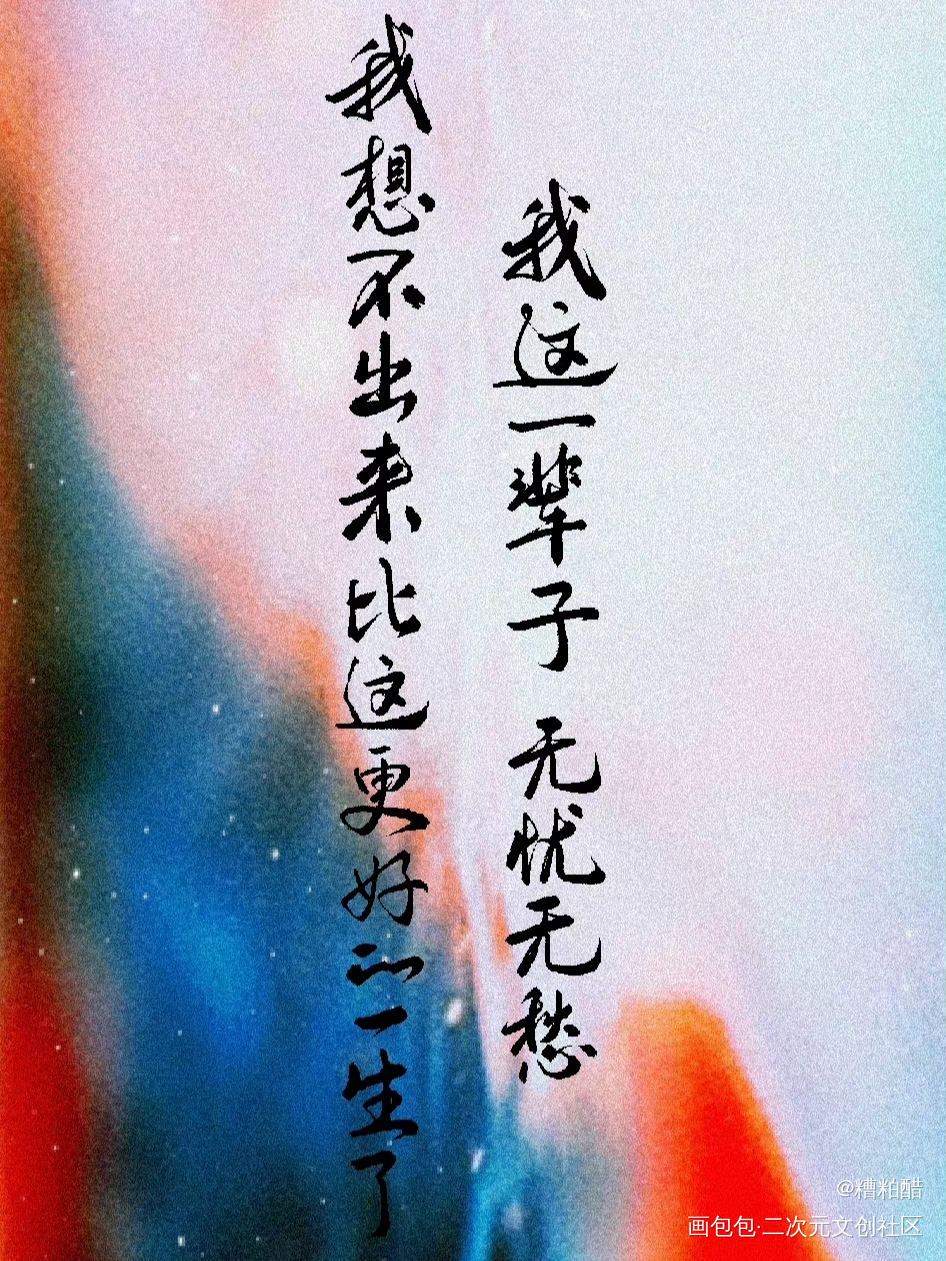 我这一辈子 无忧无愁
我想不出来比这更好的一生了
@糟粕醋
画包包·二次元文创社区